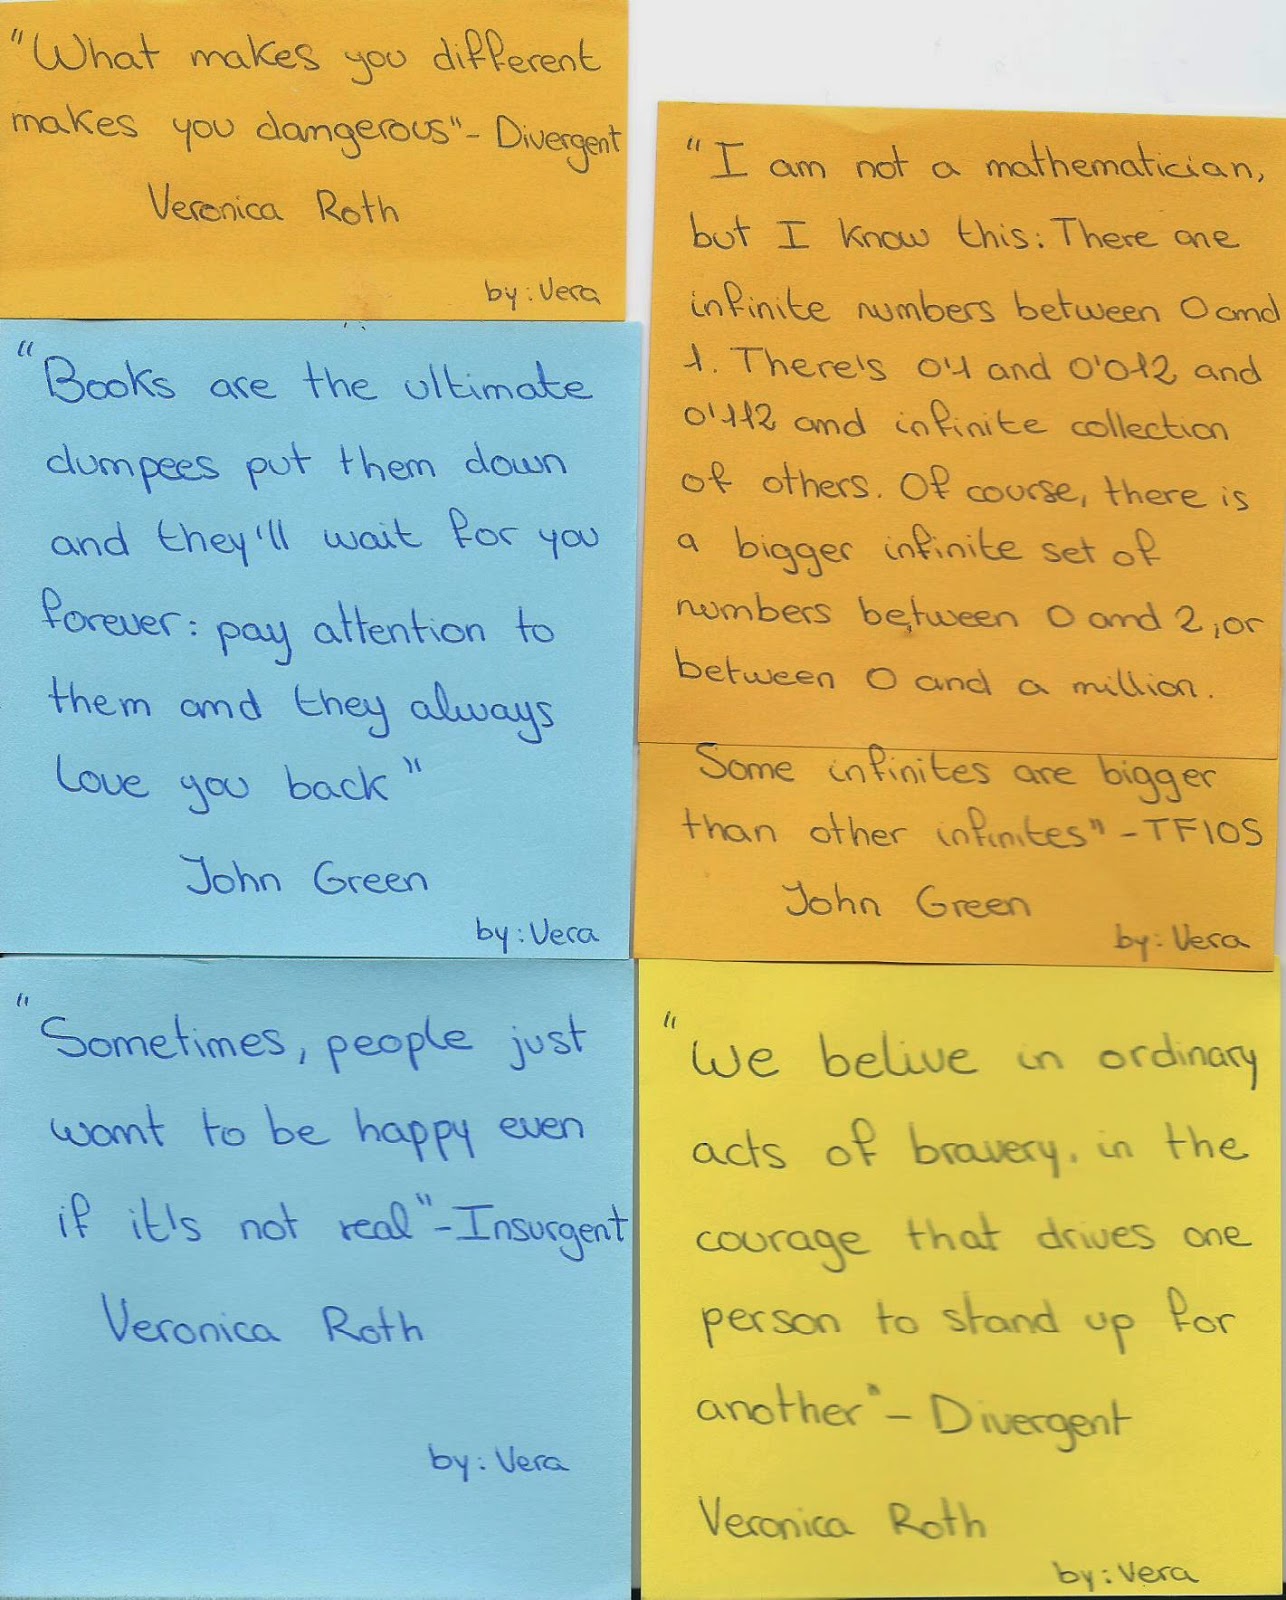 "What makes you different
makes you dangerous"- Divergent
Veronica Roth
by: Vera
"Books are the ultimate
dumpees put them down
and they'll wait for you
forever: pay attention to
them and they always
love you back"
John Green
by: Vera
"Sometimes, people just
want to be happy even
if it's not real"-Insurgent
Veronica Roth
by: Vera
"I am not a mathematician,
but I know this: There are
infinite numbers between 0 and
1. There's 0'1 and 0'012 and
0'112 and infinite collection
of others. Of course, there is
a bigger infinite set of
numbers between 0 and 2, or
between 0 and a million.
Some infinites are bigger
than other infinites" -TFIOS
John Green
by: Vera
"We belive in ordinary
acts of bravery. in the
courage that drives one
person to stand up for
another"- Divergent
Veronica Roth
by: Vera